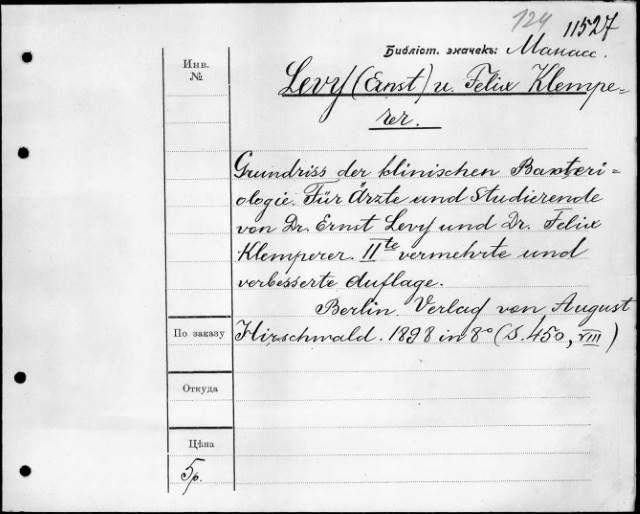 124 11527
Библіот. значекъ: Манасс.
Инв.
№
Levy (Ernst) u. Felix Klempe-
rer.
Grundriss der klinischen Bakteri=
ologie. Für Ärzte und Studierende
von Dr. Ernst Levy und Dr. Felix
Klemperer. IIte vermehrte und
verbesserte Auflage.
Berlin. Verlag von August
По заказу
Hirschwald. 1898 in 8º (S. 450, VIII)
Откуда
Цѣна
5р.